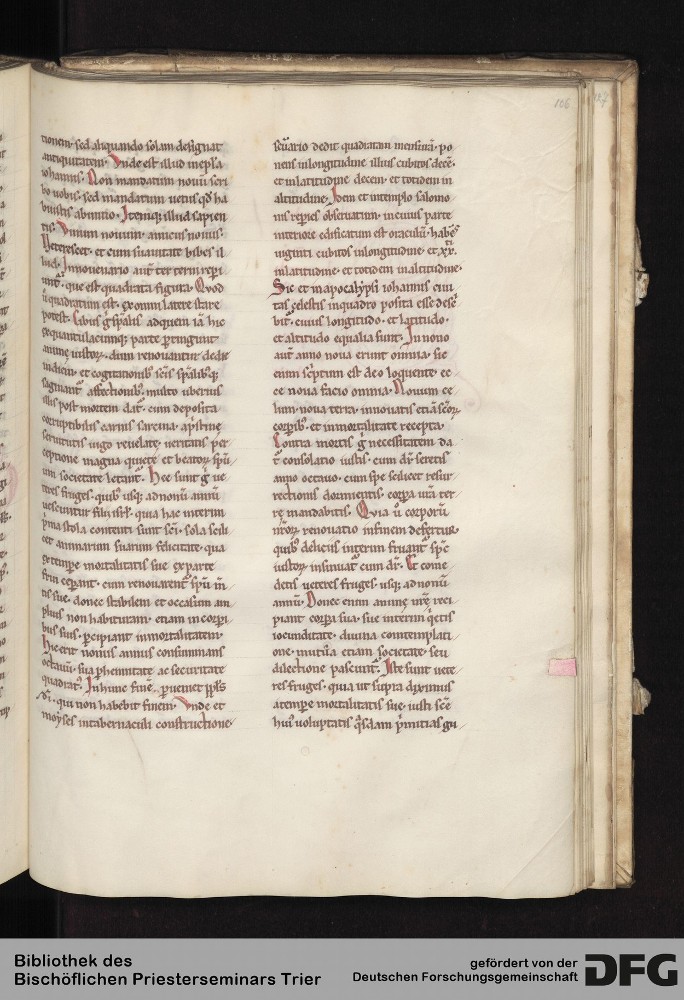 106
107
tionem· sed aliquando solam designat
antiquitatem· Vnde est illud in epl̄a
iohannis· Non mandatum nouū scri
bo uobis· sed mandatum uetus qd̄ ha
buistis ab initio· Itemq; illud sapien
tis· Vinum nouum· amicus nouus·
Veterescet· et cum suauitate bibes il
lud· In nouenario aut̄ ter terni repi
unt̄· que est quadrata figura· Quod
ū quadratum est· ex omni latere stare
potest· Cibus ḡ sp̄alis ad quem iā hic
ex quantulacumq; parte ꝑtingunt
anime iustoꝝ· dum renouantur de die
in diem· et cogitationib; scīs sp̄alib;q;
saginant̄ affectionib;· multo uberius
illis post mortem dat̄· cum deposita
corruptibilis carnis sarcina· apstine
seruitutis iugo reuelatę ueritatis per
ceptione magna quiete et beatoꝝ spū
um societate letant̄· Hec sunt ḡ ue
teres fruges· quib; usq; ad nonū annū
uescuntur filii isrl̄· quia hac interim
p̄ma stola contenti sunt scī· sola scili
cet animarum suarum felicitate· qua
ex tempe mortalitatis sue ex parte
frui ceꝑant· cum renouarent̄ spū m̄
tis sue· donec stabilem et occasum am
plius non habituram· etiam in corpi
bus suis· ꝑcipiant inmortalitatem·
Hic erit nonus annus consummans
octauū· sua phennitate ac securitate
quadrat;· In hunc finē ꝑueniet ppl̄s
dī· qui non habebit finem· Vnde et
moyses in tabernaculi constructione
scūario dedit quadratam mensurā· po
nens in longitudine illius cubitos decē·
et in latitudine decem· et totidem in
altitudine· Idem et in templo salomo
nis repies obseruatum· in cuius parte
interiore edificatum est oraculū· habēs
uiginti cubitos in longitudine· et xx.ti
in latitudine· et totidem in altitudine·
Sic et in apocalypsi iohannis ciui
tas celestis in quadro posita esse desc̄
bit̄· cuius longitudo· et latitudo·
et altitudo equalia sunt· In nono
aut̄ anno noua erunt omnia· sic
enim sc̄ptum est deo loquente· ec
ce noua facio omnia· Nouum ce
lum· noua terra· innouatis etiā scōꝝ
corpib;· et inmortalitate recepta·
Contra mortis ḡ necessitatem da
t̄ consolatio iustis· cum dr̄ seretis
anno octauo· cum spe scilicet resur
rectionis dormientis· corpa ura ter
rę mandabitis· Quia ū corporū
nr̄oꝝ renouatio in finem defertur·
quib; deliciis interim fruant̄ spc̄
iustoꝝ insinuat̄ cum dr̄· Et come
detis ueteres fruges· usq; ad nonū
annū· Donec enim anime nrę reci
piant corpa sua· sue interim q̄etis
iocunditate· diuina contemplati
one· mutua etiam societate· seu
dilectione pascunt̄· Iste sunt uete
res fruges· quia ut supra diximus
a tempe mortalitatis sue· iusti scē
hui; uoluptatis q̄sdam p̄mitias gu
Bibliothek des
Bischöflichen Priesterseminars Trier
gefördert von der
Deutschen Forschungsgemeinschaft
DFG